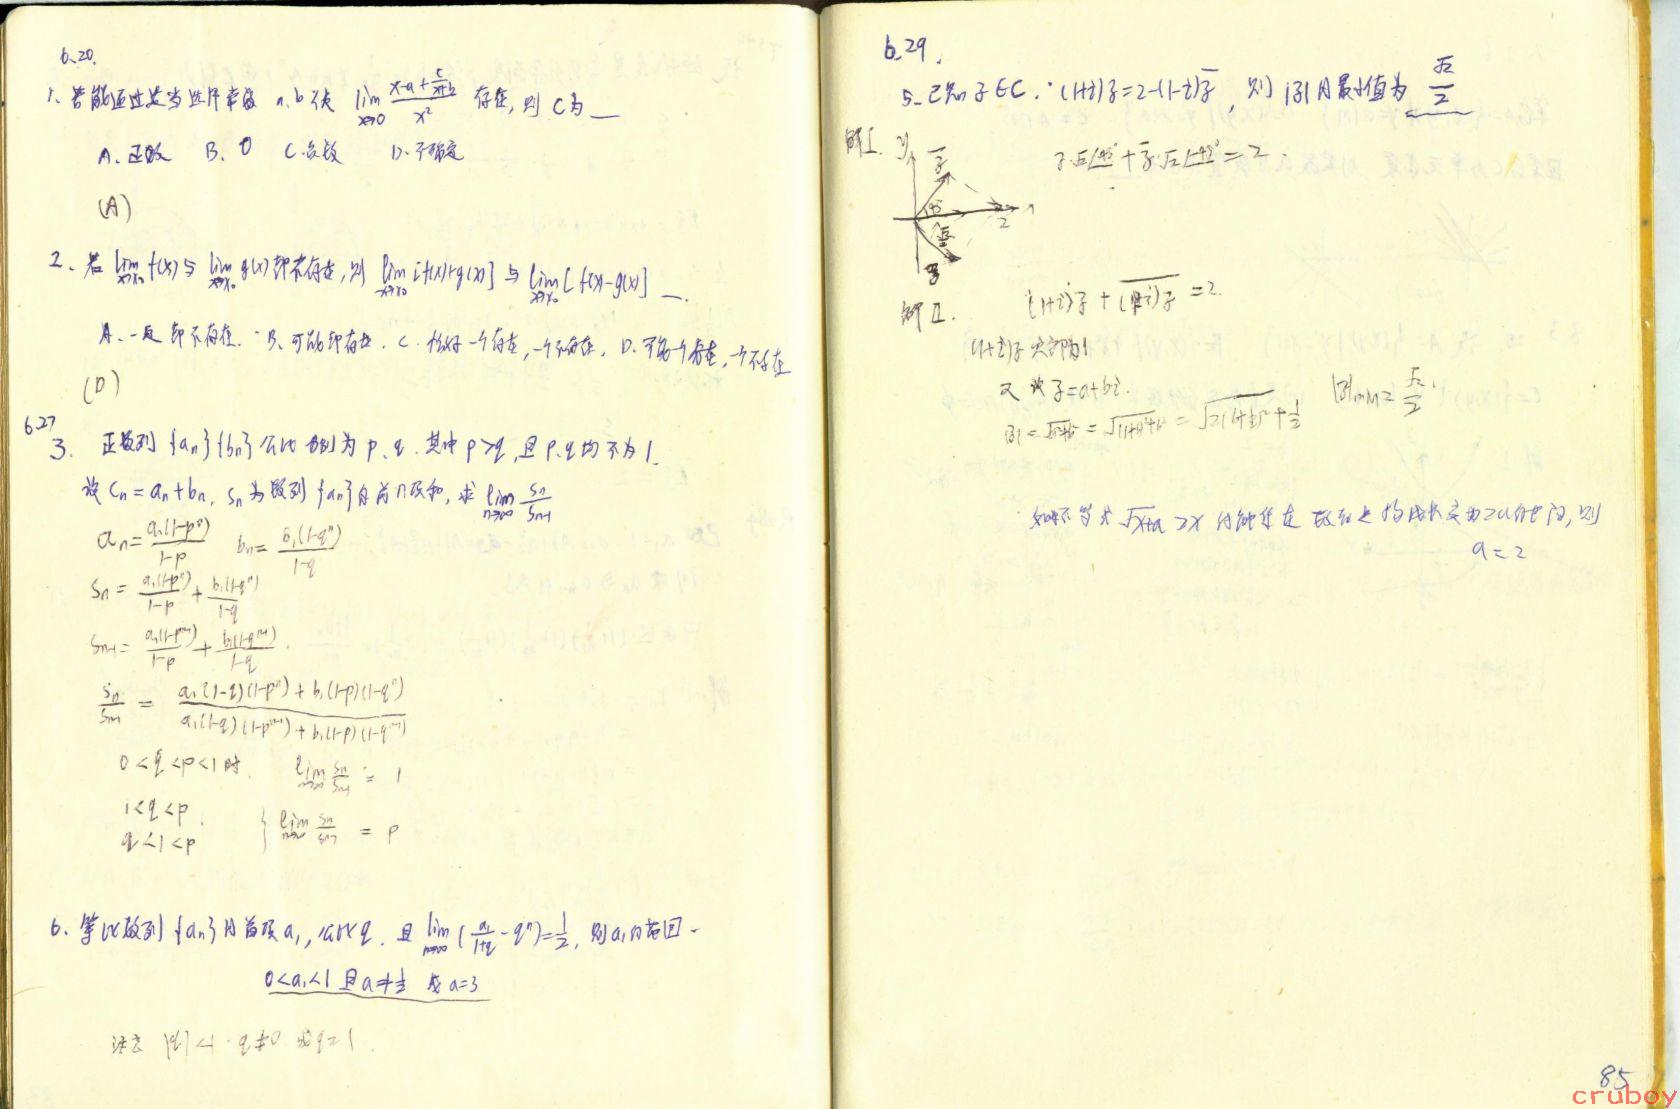 6.20.
1. 若能通过适当选择常数 a, b 使 lim x→0 (x-a+c/(x+b))/x² 存在, 则 C为 __
A. 正数 B. 0 C. 负数 D. 不确定
(A)
2. 若 lim x→x₀ f(x) 与 lim x→x₀ g(x) 都不存在, 则 lim x→x₀ [f(x)+g(x)] 与 lim x→x₀ [f(x)-g(x)] __.
A. 一定都不存在. B. 可能都存在. C. 恰好一个存在, 一个不存在. D. 可能一个存在, 一个不存在
(D)
6.27
3. 正数列 {an} {bn} 公比分别为 p. q. 其中 p>q, 且 p. q 均不为 1.
设 Cn = an + bn, Sn 为数列 {an} 的前 n 项和, 求 lim n→∞ Sn/Sn-1
an = a₁(1-pⁿ)/(1-p) bn = b₁(1-qⁿ)/(1-q)
Sn = a₁(1-pⁿ)/(1-p) + b₁(1-qⁿ)/(1-q)
Sn-1 = a₁(1-pⁿ⁻¹)/(1-p) + b₁(1-qⁿ⁻¹)/(1-q).
Sn/Sn-1 = (a₁(1-q)(1-pⁿ) + b₁(1-p)(1-qⁿ))/(a₁(1-q)(1-pⁿ⁻¹) + b₁(1-p)(1-qⁿ⁻¹))
0<q<p<1时. lim n→∞ Sn/Sn-1 = 1
1<q<p.
q<1<p } lim n→∞ Sn/Sn-1 = p
6. 等比数列 {an} 的首项 a₁, 公比 q. 且 lim n→∞ (a₁/(1+q) - qⁿ) = 1/2, 则 a₁ 的范围
0<a₁<1 且 a≠1/2 或 a=3
注意 |q|<1. q≠0. 或 q=1.
6.29.
5. 已知 z∈C. (1+i)z=2-(1-i)z̄, 则 |z| 的最小值为 √2/2
解I. y
z·√2∠45° + z̄·√2∠-45° = 2
45°
2
解II. (1+i)z + (1+i)z = 2.
(1+i)z 实部为1
又 设 z=a+bi.
|z| = √(a²+b²) = √((1+b)²+b²) = √(2(b+1/2)²+1/2)
|z|min = √2/2.
如不等式 √(x+a) ≥ x 的解集在数轴上构成长度为2a的区间, 则
a = 2
85
cruboy